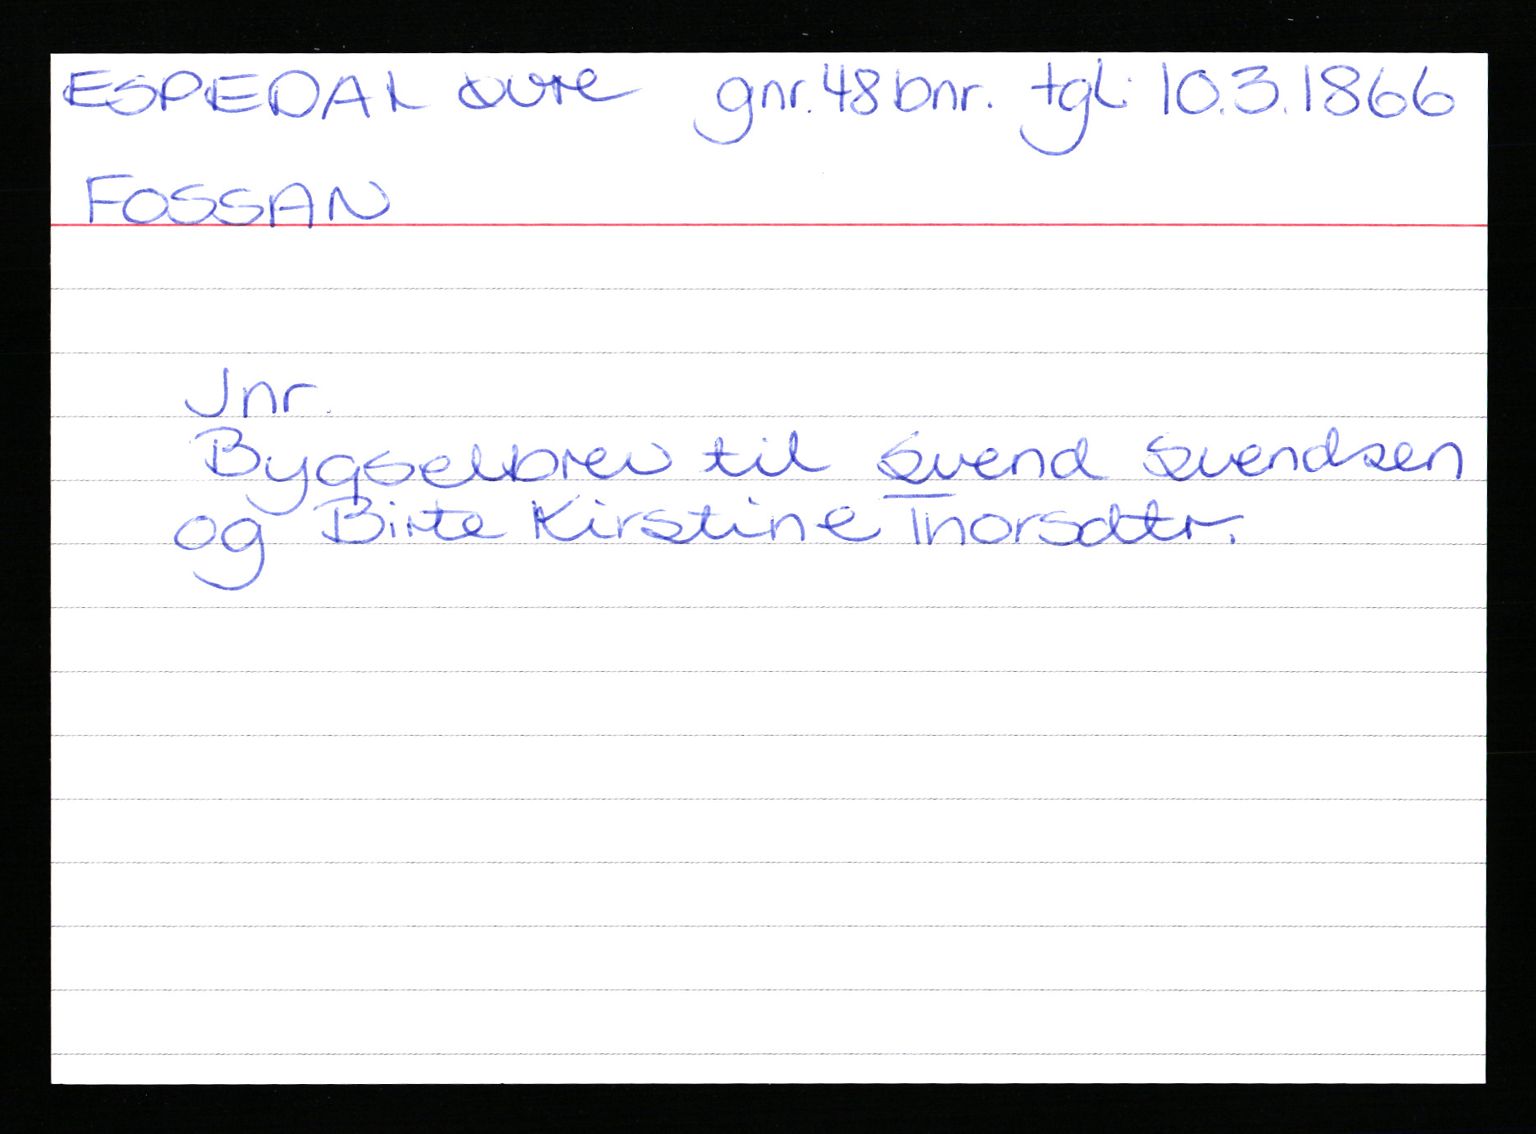 ESPEDAL øvre gnr. 48 bnr. tgl. 10.3.1866
FOSSAN
Jnr
Bygselbrev til Svend Svendsen
og Birte Kirstine Thorsdtr.